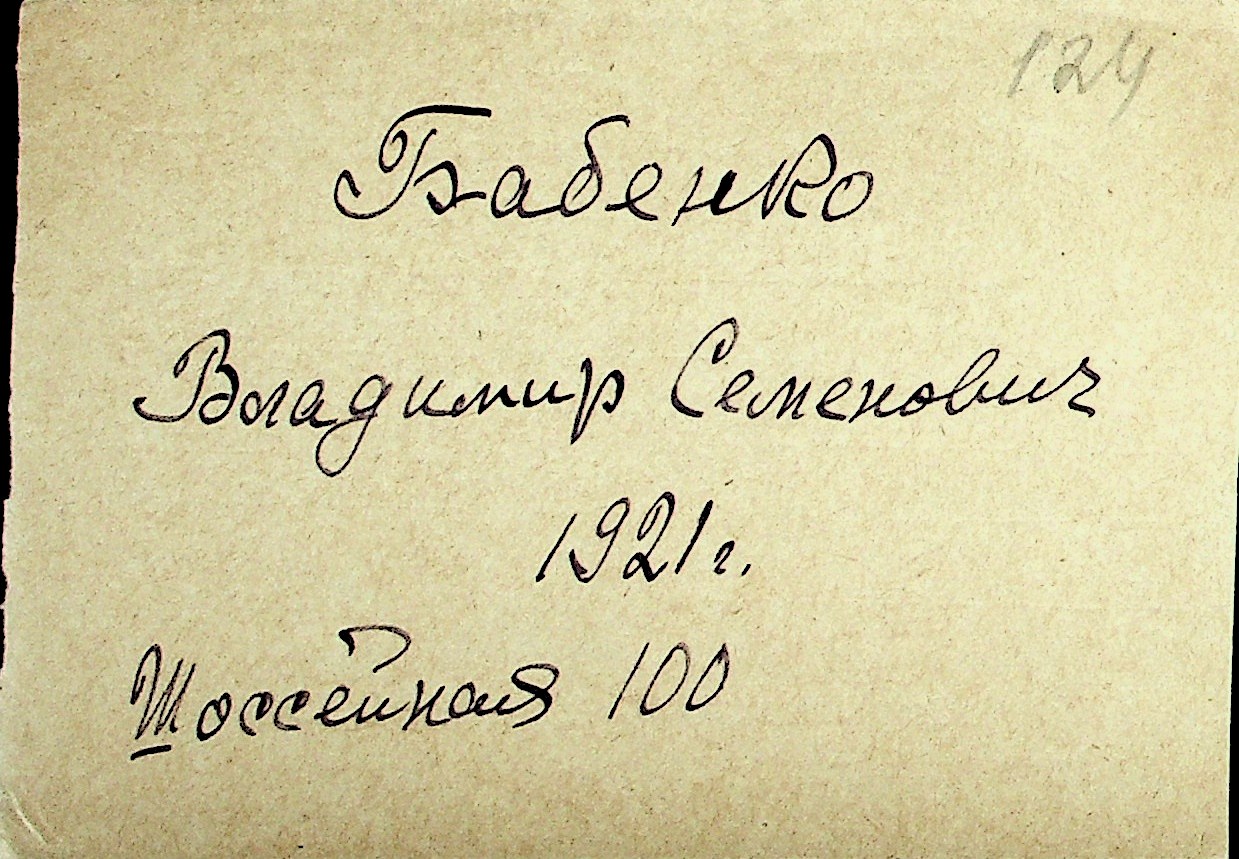 124
Бабенко
Владимир Семенович
1921 г.
Шоссейная 100